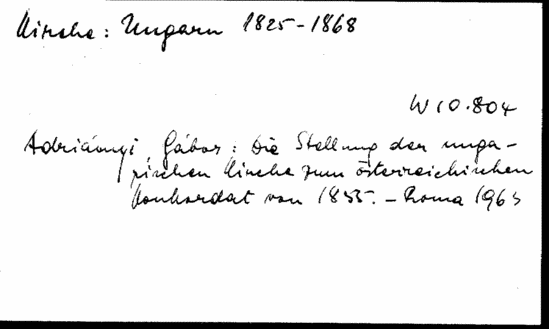 Kirche: Ungarn 1825-1868
W 10.804
Adriányi Gábor: Die Stellung der unga-
rischen Kirche zum österreichischen
Konkordat von 1855. - Roma 1963